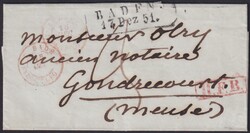 BADEN
17 Dez 51.
Monsieur Olry
ancien notaire
Gondrecourt
(Meuse)